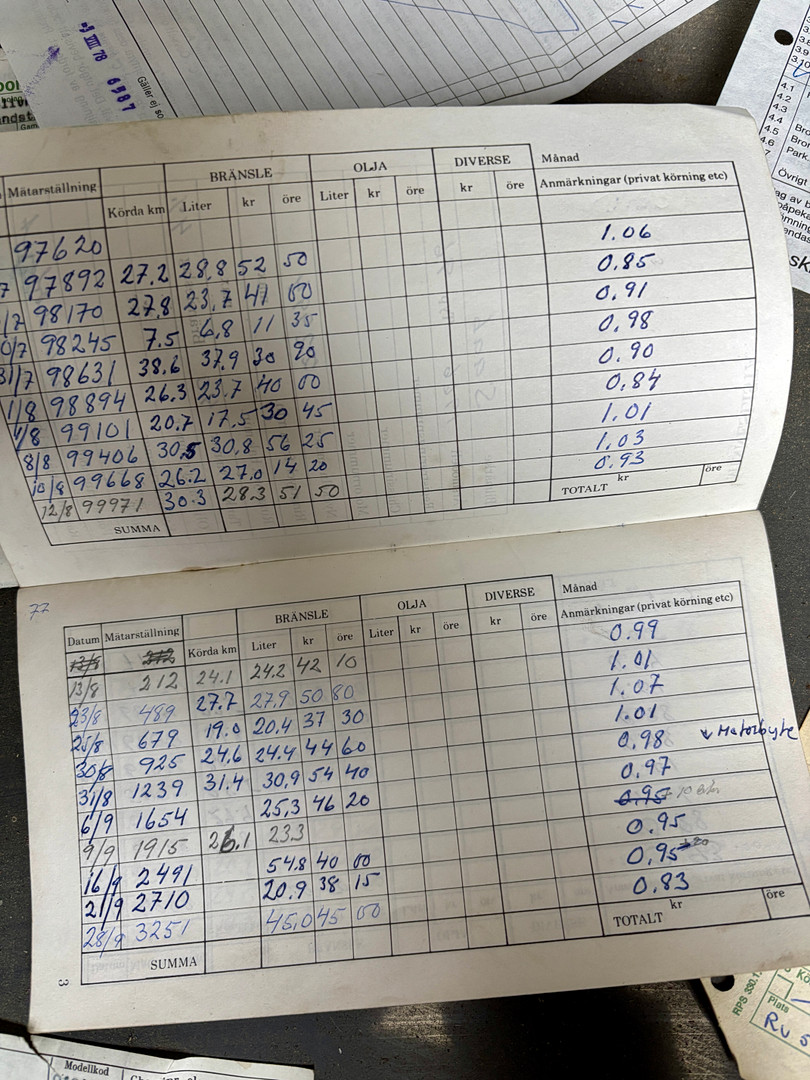 VIII 78 6987
Gäller ej so
4.1
4.2
4.3
4.4
4.5
4.6
Bro
Bron
Park
Övrigt
BRÄNSLE OLJA DIVERSE Månad
Mätarställning Körda km Liter kr öre Liter kr öre kr öre Anmärkningar (privat körning etc)
97620 1.06
97892 27.2 28,8 52 50 0.85
/7 98170 27.8 23,7 41 00 0.91
0/7 98245 7.5 6,8 11 35 0.98
31/7 98631 38.6 37.9 30 90 0.90
1/8 98894 26.3 23.7 40 00 0.84
/8 99101 20.7 17.5 30 45 1.01
8/8 99406 30,5 30,8 56 25 1.03
10/8 99668 26.2 27.0 14 20 0.93
12/8 99971 30.3 28.3 51 50
SUMMA TOTALT kr öre
77
BRÄNSLE OLJA DIVERSE Månad
Datum Mätarställning Körda km Liter kr öre Liter kr öre kr öre Anmärkningar (privat körning etc)
13/8 212 0.99
13/8 212 24.1 24.2 42 10 1.01
23/8 489 27.7 27.9 50 80 1.07
25/8 679 19.0 20.4 37 30 1.01
30/8 925 24.6 24.4 44 60 0.98 ↓ Motorbyte
31/8 1239 31.4 30,9 54 40 0.97
6/9 1654 25,3 46 20 0.95
9/9 1915 26.1 23.3 0.95
16/9 2491 54.8 40 00 0.95
21/9 2710 20.9 38 15 0.83
28/9 3251 45,0 45 00
SUMMA TOTALT kr öre
3
Modellkod
RPS 330.1
Plats